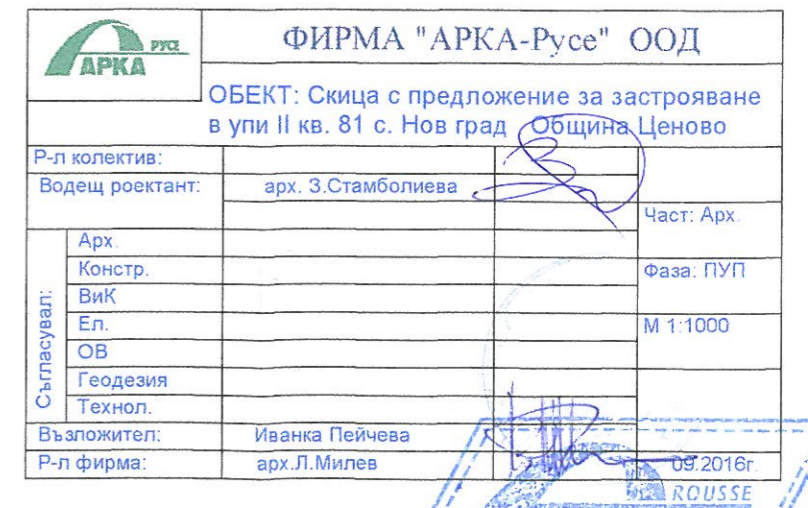 РУСЕ
АРКА
ФИРМА "АРКА-Русе" ООД
ОБЕКТ: Скица с предложение за застрояване
в упи II кв. 81 с. Нов град Община Ценово
Р-л колектив:
Водещ роектант: арх. З.Стамболиева
Част: Арх.
Съгласувал:
Арх.
Констр. Фаза: ПУП
ВиК
Ел. М 1:1000
ОВ
Геодезия
Технол.
Възложител: Иванка Пейчева
Р-л фирма: арх.Л.Милев 09.2016г.
ROUSSE